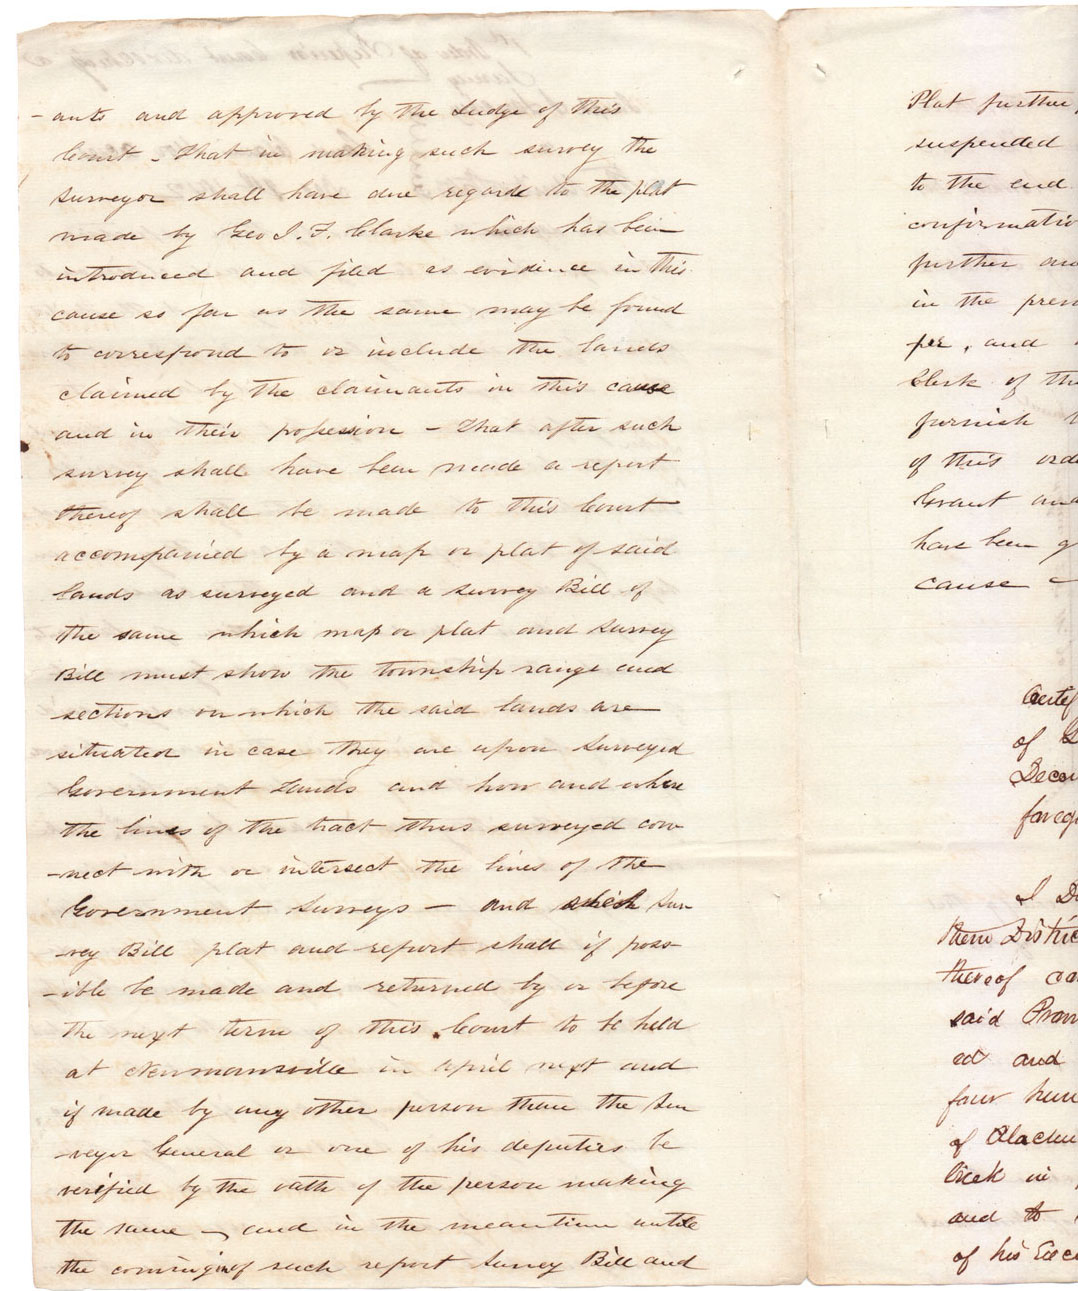 -ants and approved by the Judge of this
Court - That in making such survey the
surveyor shall have due regarde to the plat
made by Geo J. F. Clarke which has been
introduced and filed as evidence in this
cause so far as the same may be found
to correspond to or include the lands
claimed by the claimants in this cause
and in their possession - That after such
survey shall have been made a report
thereof shall be made to this Court
accompanied by a map or plat of said
lands as surveyed and a survey Bill of
the same which map or plat and survey
Bill must show the township range and
sections on which the said lands are
situated in case they are upon surveyed
Government Lands and how and where
the lines of the tract thus surveyed con
-nect with or intersect the lines of the
Government Surveys - and which Sur
-vey Bill plat and report shall if poss-
-ible be made and returned by or before
the next term of this Court to be held
at Newmansville in april next and
if made by any other person than the Sur
-veyor General or one of his deputies be
verified by the oath of the person making
the same - and in the meantime untile
the coming in of such report Survey Bill and
Plat further
suspended
to the end
confirmatio
further and
in the prem
per, and
Clerk of the
furnish
of this orde
Grant and
have been g
cause -
Certif
of
Decem
forego
I D
thern Distric
thereof
said Prov
ed and
four hun
of Alachu
Creek in
and to
of his Exce